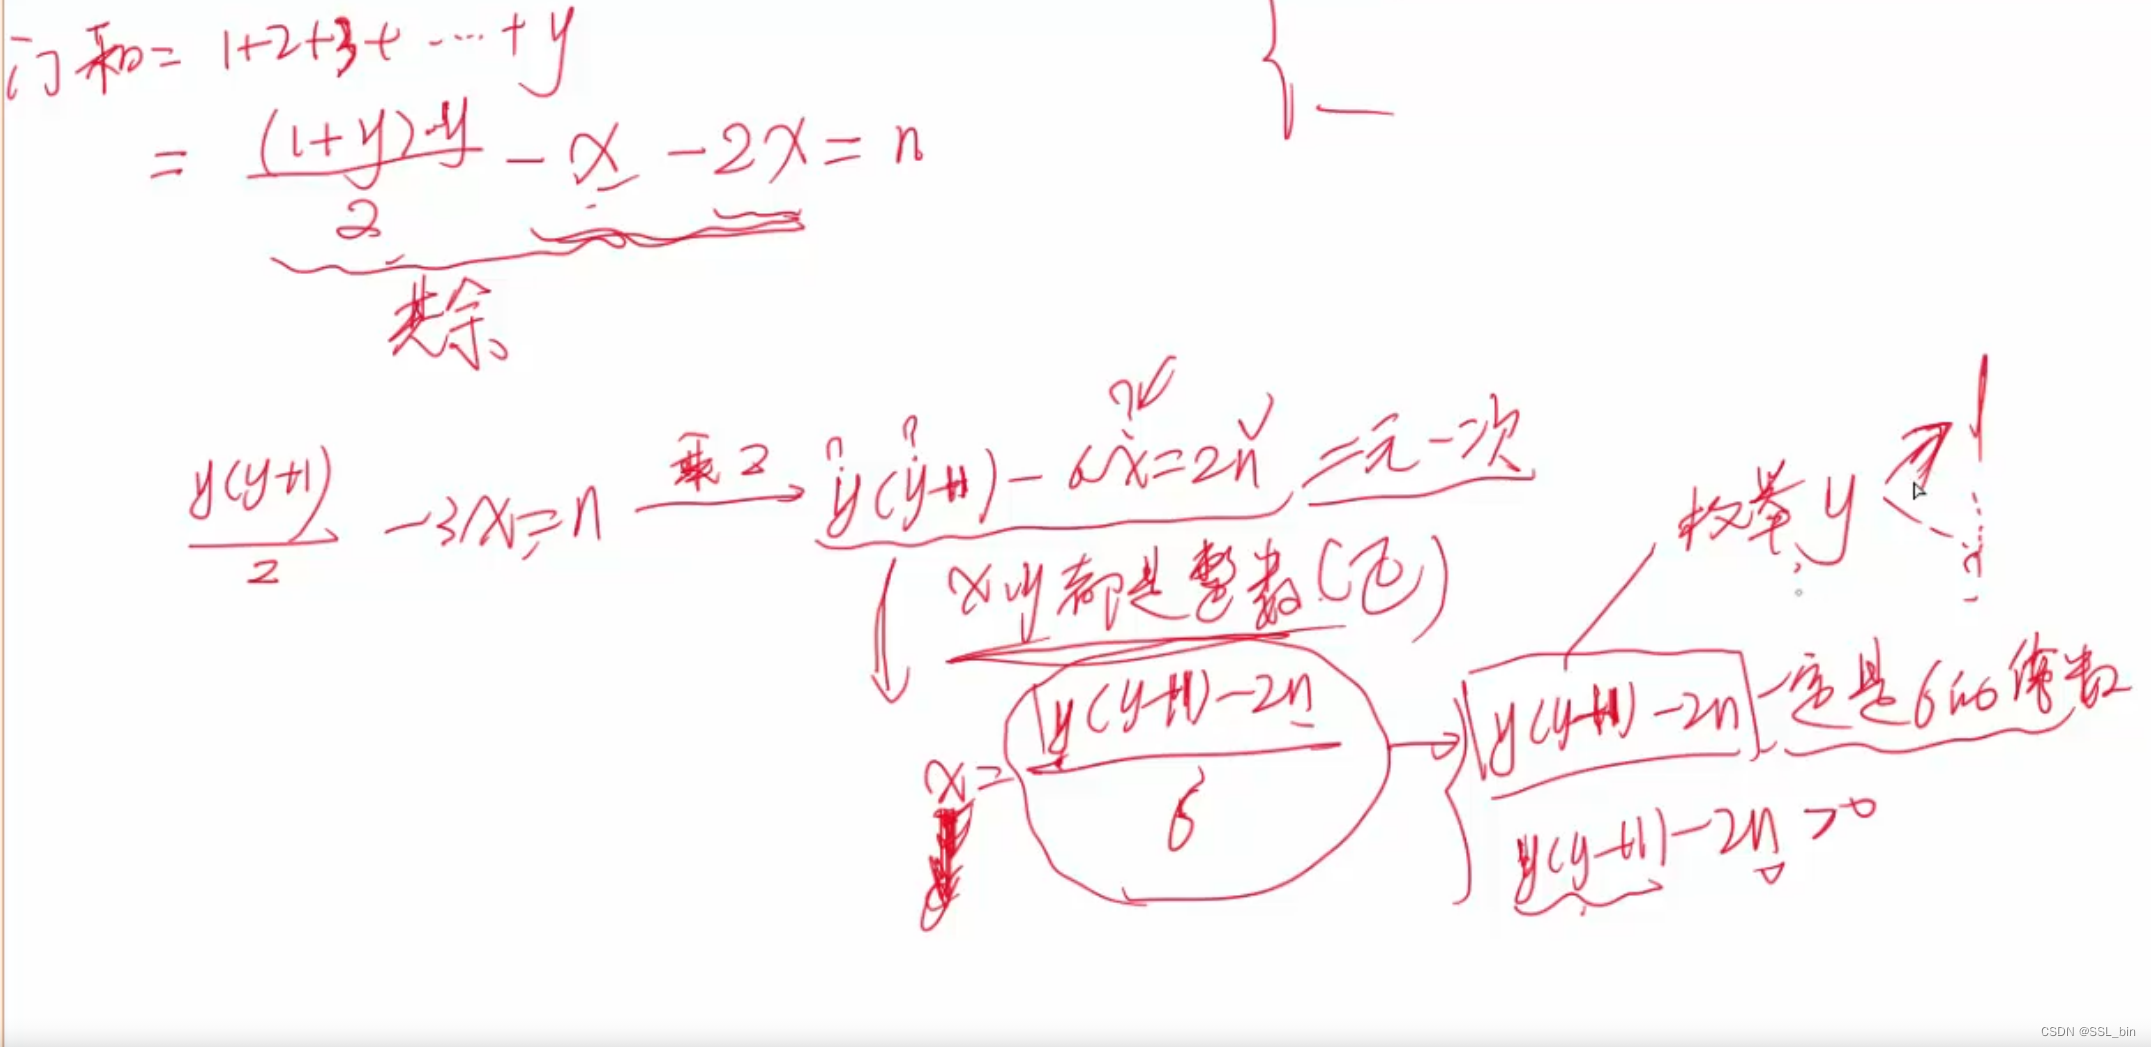 门和= 1+2+3+ ····· + y
= (1+y)·y / 2 - x - 2x = n
共余
y(y+1) / 2 - 3x = n 乘2 y(y+1) - 6x = 2n 二元一次
枚举y
x y 都是整数(正)
x = y(y+1)-2n / 6
y(y+1)-2n 一定是6的倍数
y(y+1)-2n >0
CSDN @SSL_bin